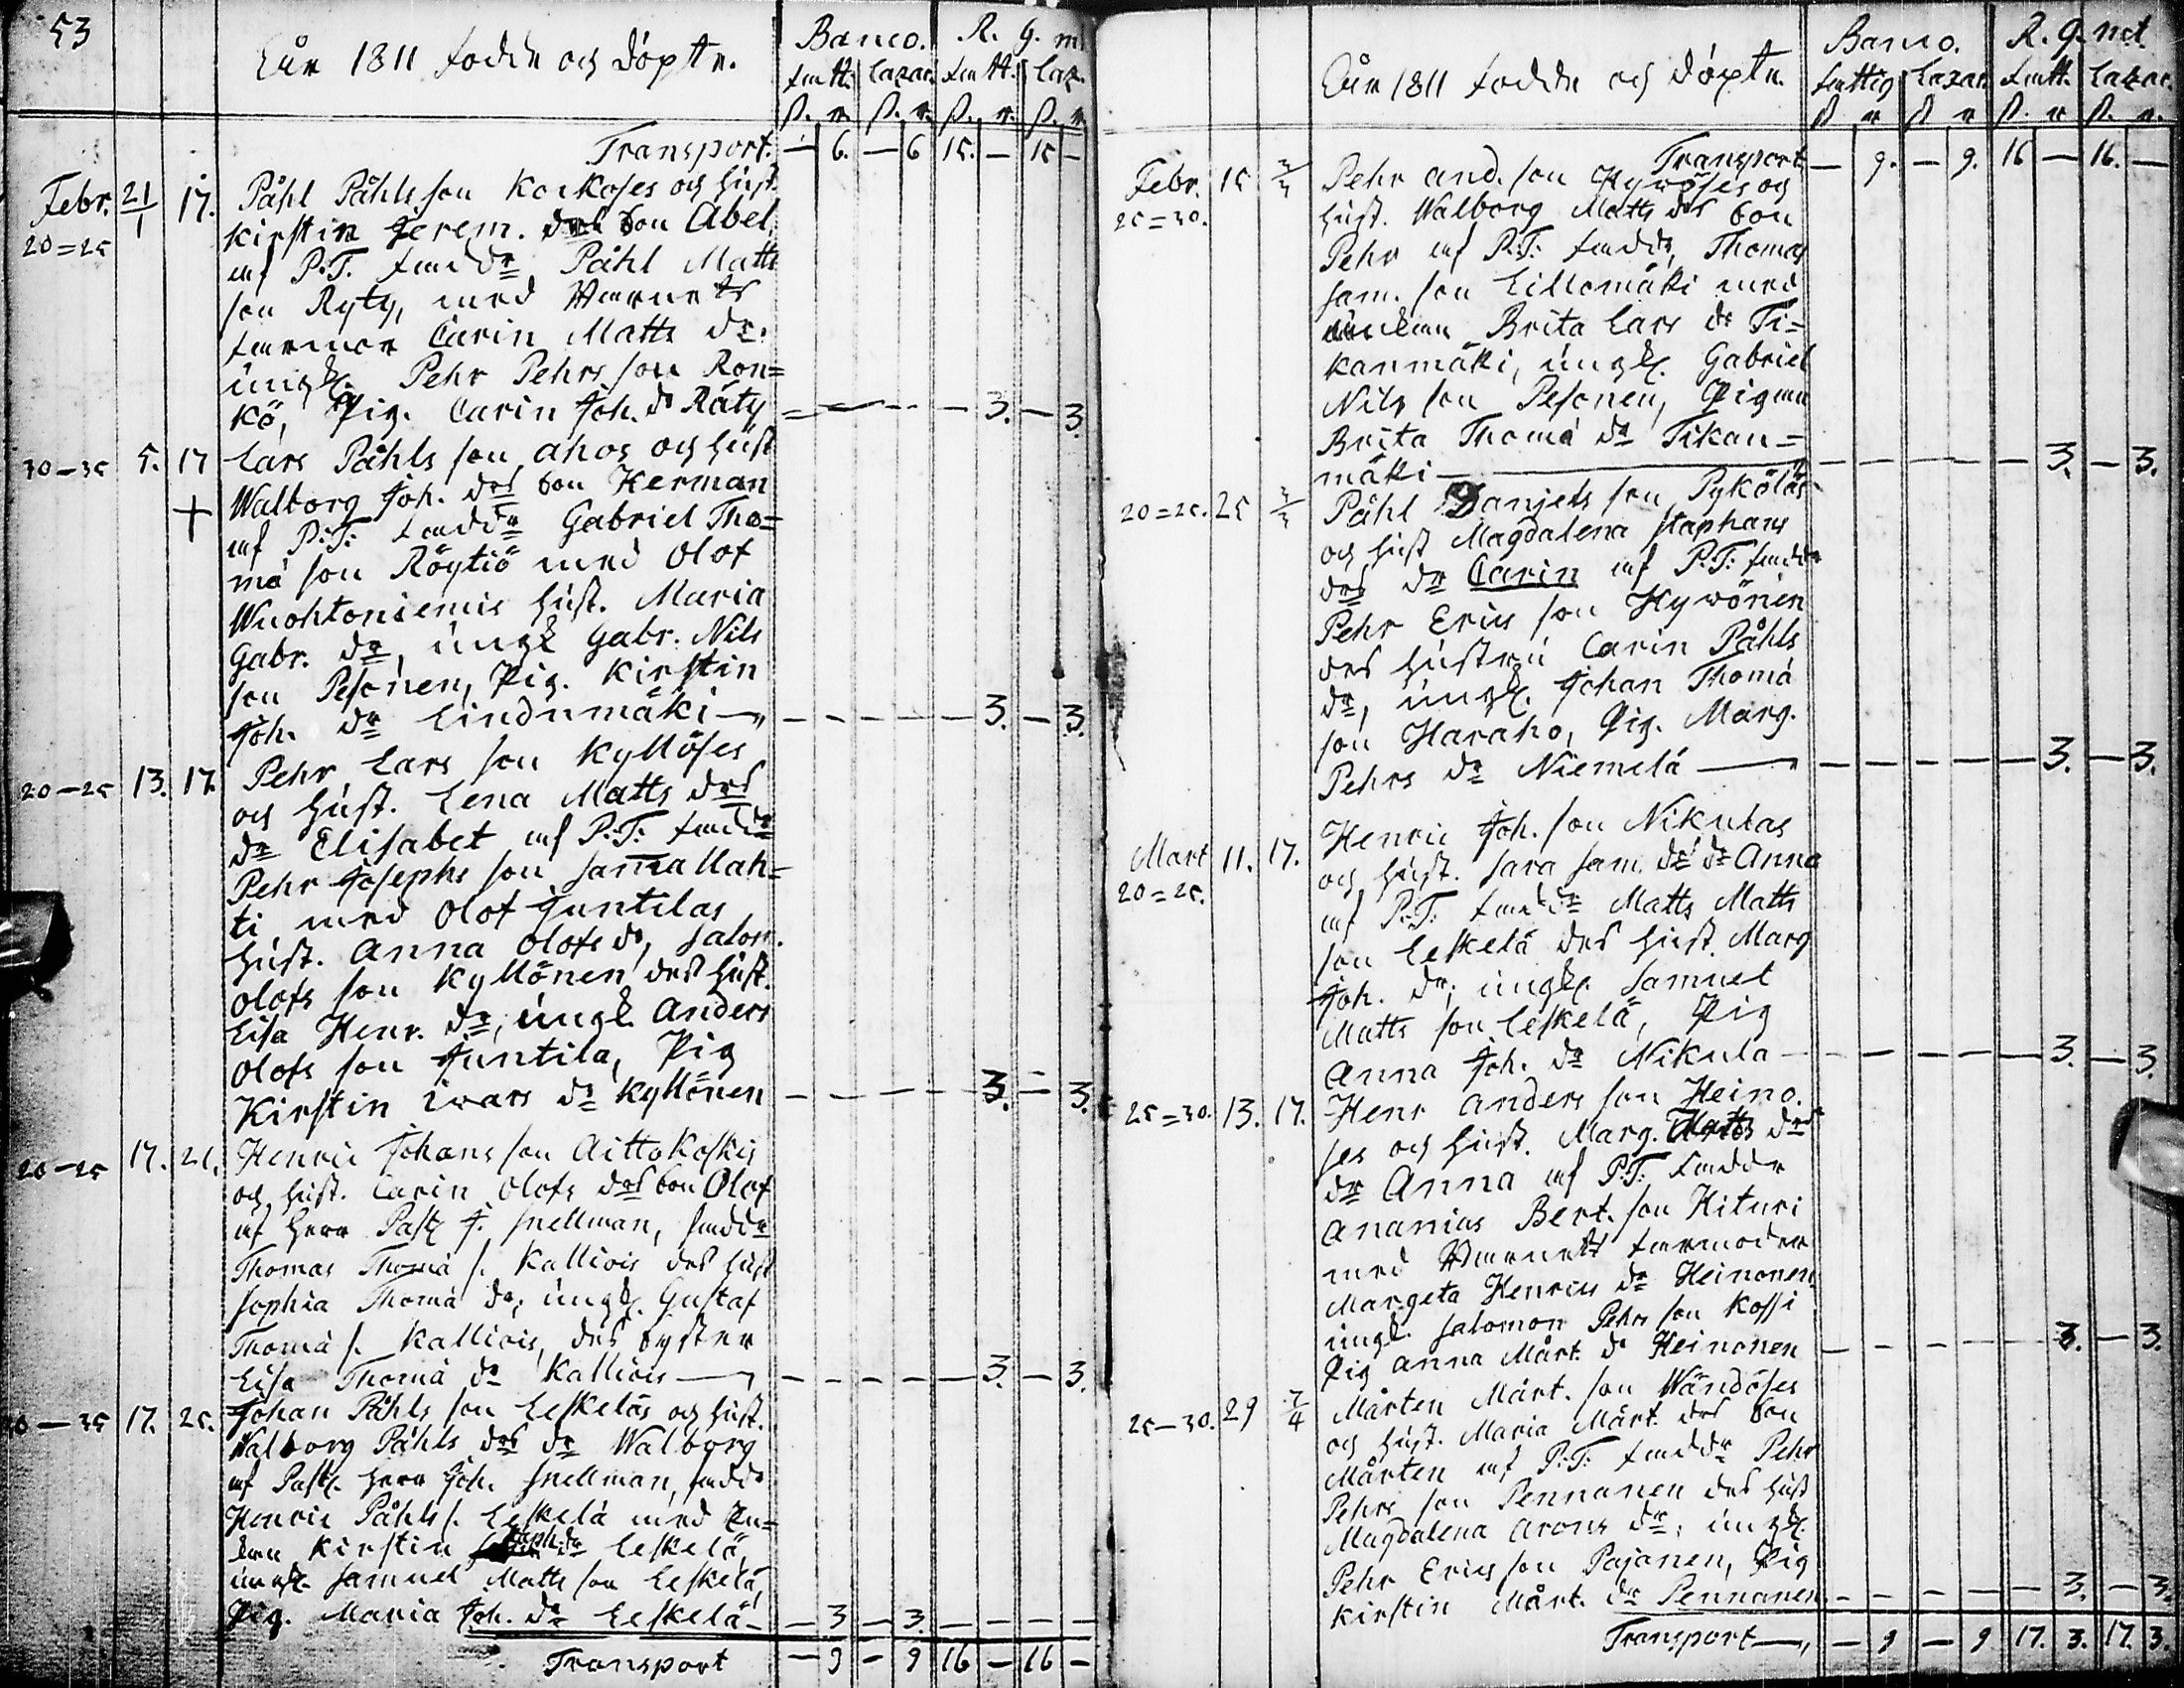 53
År 1811 födde och döpte.
Banco. R. G. m.
fatt. Lazar. fatt. Laz.
Transport. — 6. — 6 15. — 15 —
Febr. 21/1 17. Påhl Påhls son Korkoses och hust.
20=25 Kirstin Jerem. dr son Abel,
af P:T: fadde Påhl Matts
son Ryty, med Barnets
farmor Carin Matts dr.
ungk. Pehr Pehrs son Ron=
kö, Pig. Carin Joh. dr Räty — 3. — 3.
30—35 5. 17 Lars Påhls son Ahos och hust
+ Walborg Joh. drs son Herman
af P:T: fadde Gabriel Tho=
mä son Röytiö med Olof
Wuohtoniemis hust. Maria
Gabr. dr, ungk Gabr. Nils
son Pesonen, Pig. Kirstin
Joh. dr Lindumäki — 3. — 3.
20—25 13. 17. Pehr Lars son Kyllöses
och hust. Lena Matts drs
dr Elisabet af P:T: fadde
Pehr Josephs son Sarrallah=
ti med Olof Juntilas
hust. Anna Olofs dr, Salom.
Olofs son Kyllönen des hust.
Lisa Henr. dr, ungk Anders
Olofs son Juntila, Pig
Kirstin Iwars dr Kyllönen — 3. — 3.
20—25 17. 21. Henric Johans son Aittokoskis
och hust. Carin Olofs drs son Olof
af Herr Past J. Snellman, fadde
Thomas Thomä s. Kalliois des hust
Sophia Thomä dr, ungk. Gustaf
Thomä s. Kalliois, des syster
Lisa Thomä dr Kalliois — 3. — 3.
—35 17. 25. Johan Påhls son Leskeläs och hust.
Walborg Påhls drs dr Walborg
af Past. Herr Joh. Snellman, fadde
Henric Påhls s. Leskelä med En=
kan Kirstin Staph. dr Leskelä,
ungk. Samuel Matts son Leskelä,
Pig. Maria Joh. dr Leskelä — 3 — 3. — — — —
Transport — 9 — 9 16 — 16 —
År 1811 födde och döpte.
Banco. R. G. mt.
fattig Lazar. fatt. Lazar.
Transport — 9. — 9. 16 — 16. —
Febr. 15 3/3 Pehr And. son Hywöses och
25=30. hust. Walborg Matts drs son
Pehr af P:T: fadde, Thomas
Sam. son Lillomäki med
Enkan Brita Lars dr Ti=
kanmäki, ungk. Gabriel
Nils son Pesonen, Pigan
Brita Thomä dr Tikan=
mäki — 3. — 3.
20=25. 25 3/3 Påhl Danjels son Pyköläs
och hust Magdalena Staphans
drs dr Carin af P:T: fadde
Pehr Erics son Hywönen
des hustru Carin Påhls
dr, ungk. Johan Thomä
son Haraho, Pig. Marg.
Pehrs dr Niemelä — 3. — 3.
Mart 11. 17. Henric Joh. son Nikulas
20=25. och hust. Sara Sam. drs dr Anna
af P:T: fadde Matts Matts
son Leskelä des hust. Marg
Joh. dr; ungk. Samuel
Matts son Leskelä, Pig
Anna Joh. dr Nikula — 3. — 3.
25=30. 13. 17. Henr Anders son Heino.
ses och hust. Marg. Matts drs
dr Anna af P:T: fadde
Ananias Bert. son Hituri
med Barnets farmoder
Margeta Henrics dr Heinonen
ungk. Salomon Pehrs son Kossi
Pig Anna Mårt. dr Heinonen — 3. — 3.
25—30. 29 7/4 Mårten Mårt. son Wändöses
och hust. Maria Mårt. drs son
Mårten af P:T: fadde Pehr
Pehrs son Pennanen des hust
Magdalena Arons dr; ungk.
Pehr Erics son Pajanen, Pig
Kirstin Mårt. dr Pennanen — 3. — 3.
Transport — 9 — 9 17. 3. 17. 3.